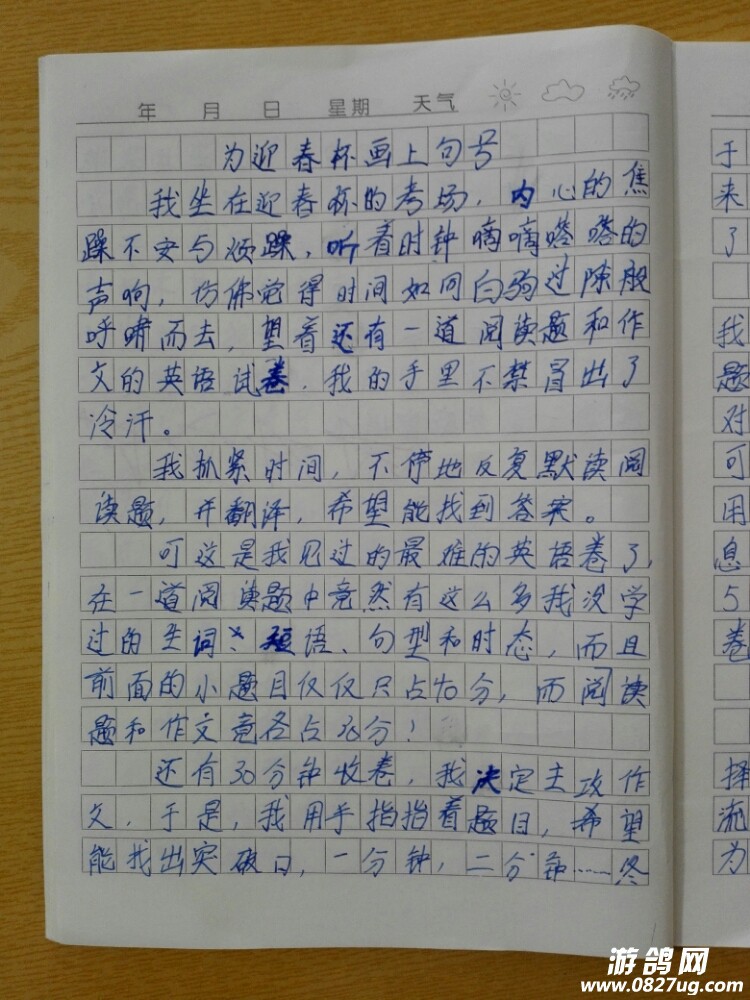 年 月 日 星期 天气
为迎春杯画上句号
我坐在迎春杯的考场，内心的焦
躁不安与烦躁，听着时钟嘀嘀嗒嗒的
声响，仿佛觉得时间如同白驹过隙般
呼啸而去，望着还有一道阅读题和作
文的英语试卷，我的手里不禁冒出了
冷汗。
我抓紧时间，不停地反复默读阅
读题，并翻译，希望能找到答案。
可这是我见过的最难的英语卷了，
在一道阅读题中竟然有这么多我没学
过的生词、短语、句型和时态，而且
前面的小题目仅仅只占40分，而阅读
题和作文竟各占30分！
还有30分钟收卷，我决定主攻作
文，于是，我用手指指着题目，希望
能找出突破口，一分钟，二分钟……终
于
来
了
我
题
对
可
用
息
5
卷
择
流
为
游鸽网
www.0827ug.com